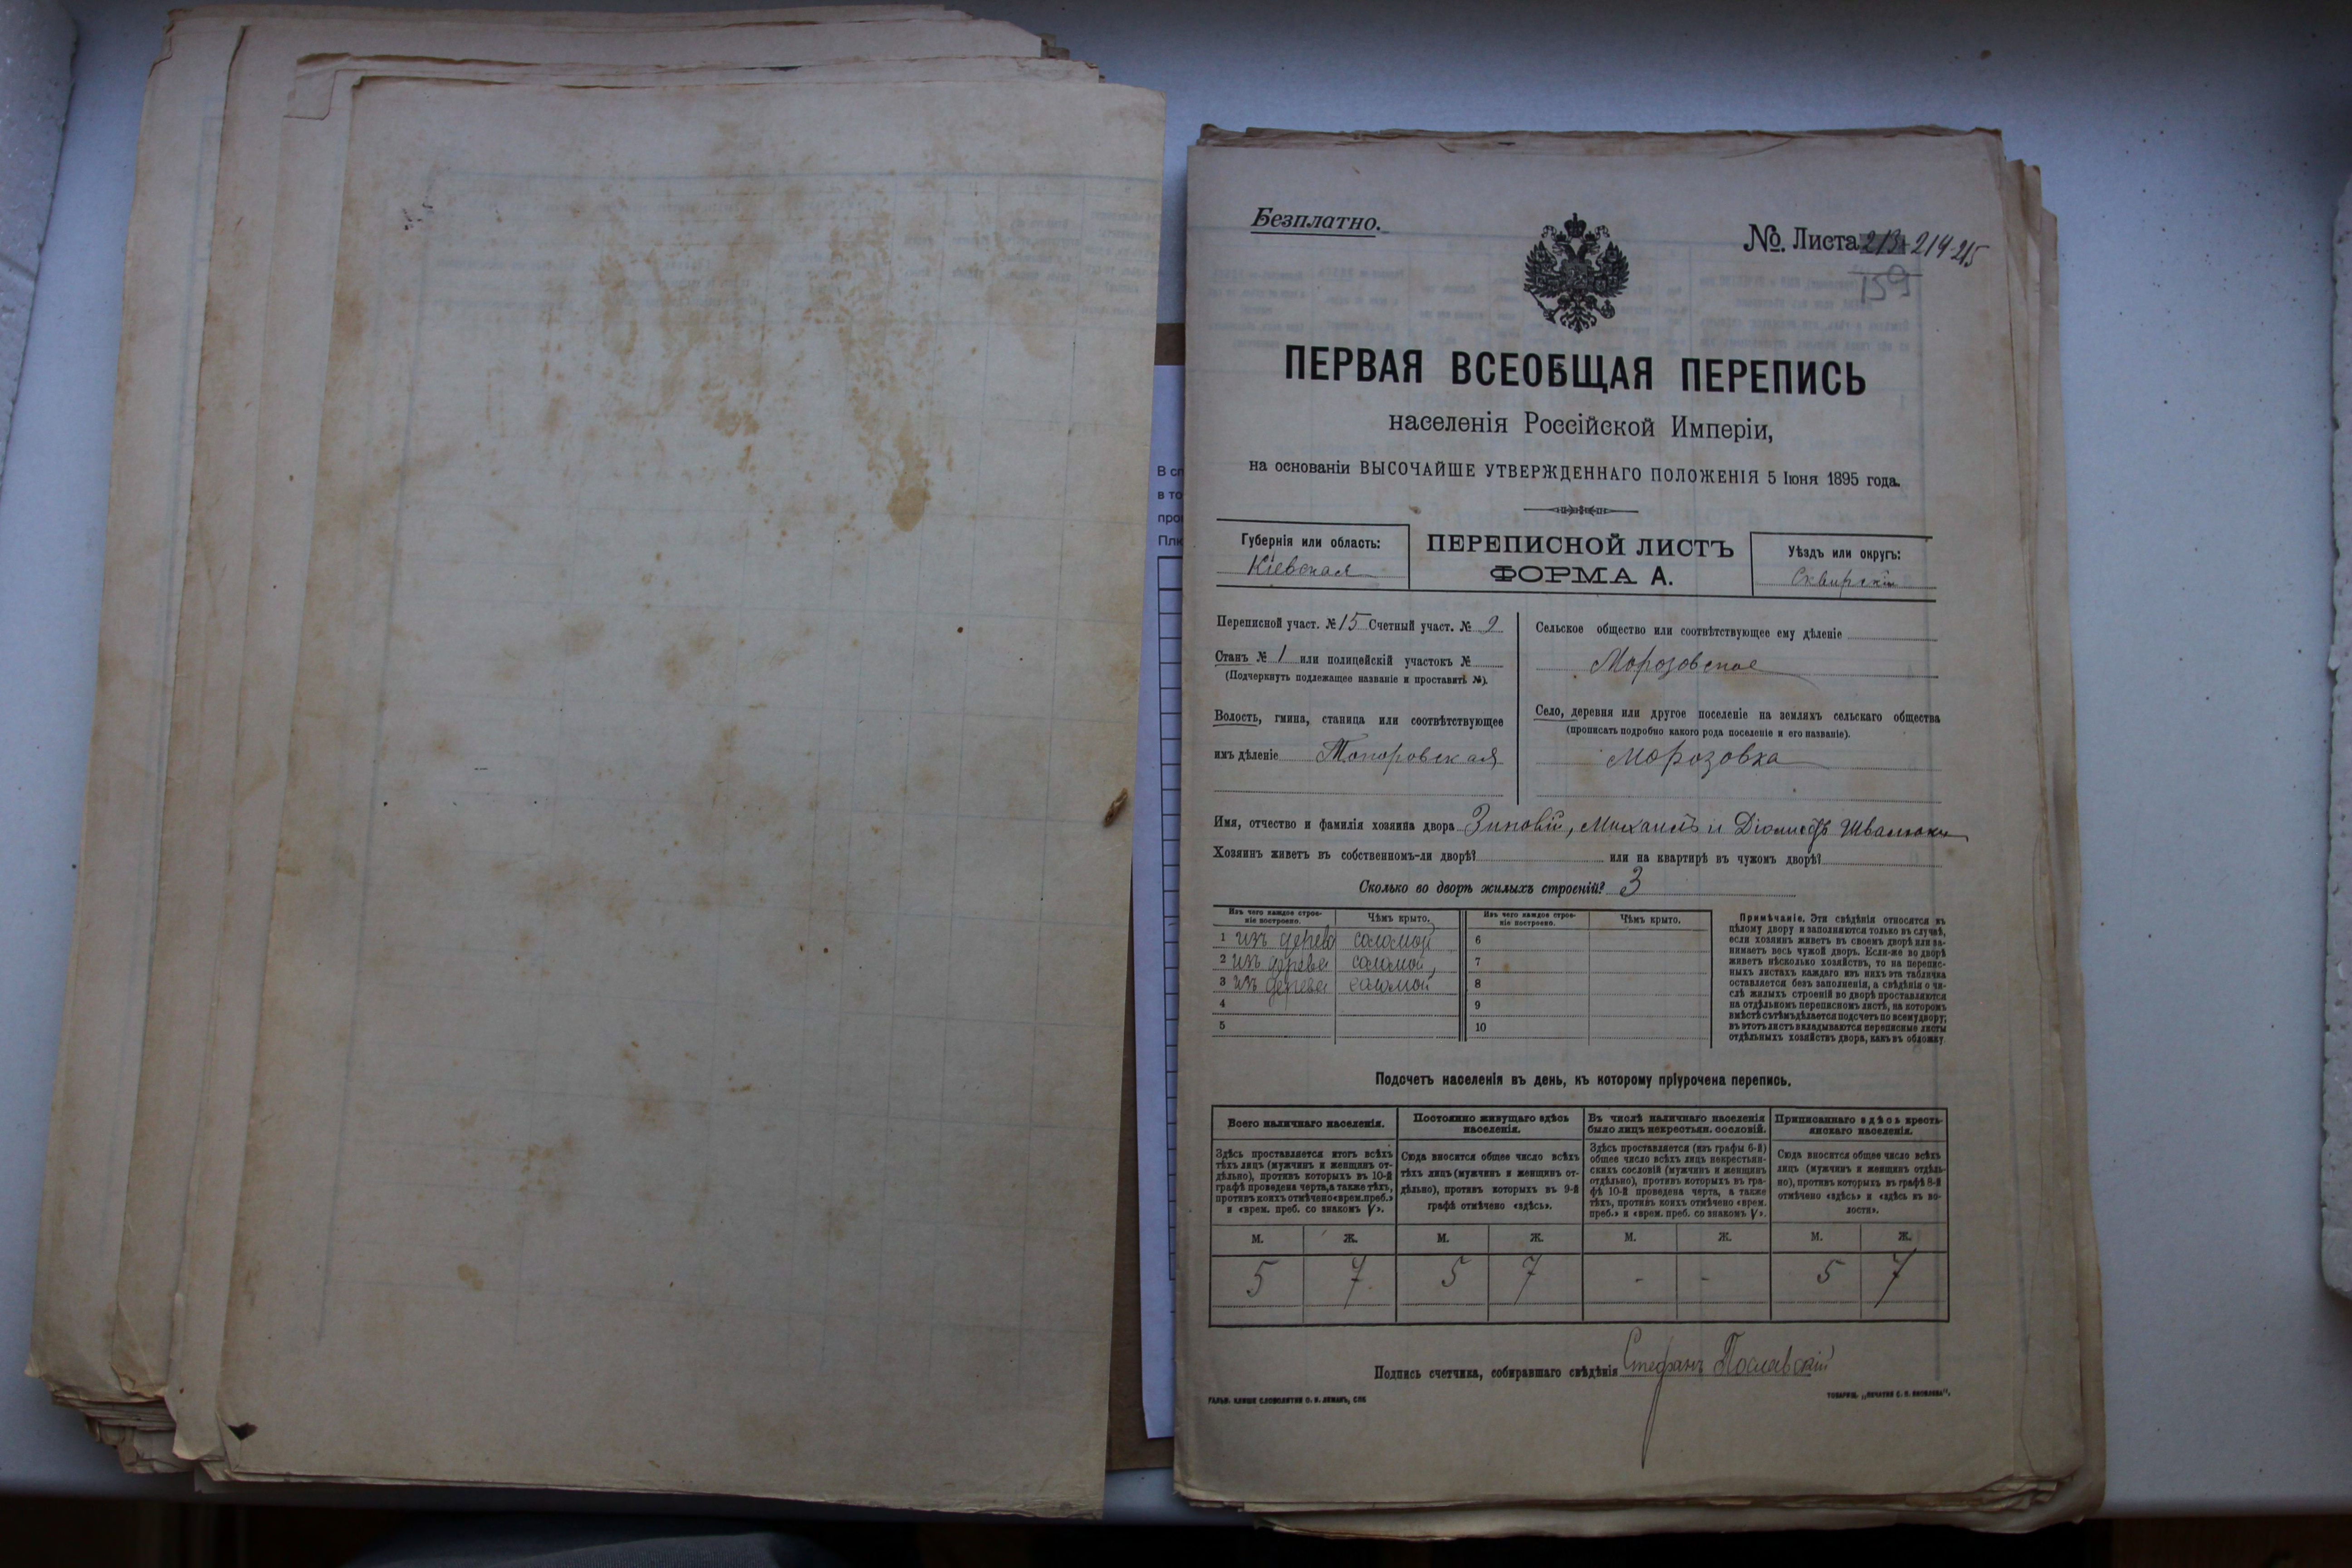 Безплатно.
№. Листа 213-214-215
159
ПЕРВАЯ ВСЕОБЩАЯ ПЕРЕПИСЬ
населенія Россійской Имперіи,
на основаніи ВЫСОЧАЙШЕ УТВЕРЖДЕННАГО ПОЛОЖЕНІЯ 5 Іюня 1895 года.
Губернія или область:
Кіевская
ПЕРЕПИСНОЙ ЛИСТЪ
ФОРМА А.
Уѣздъ или округъ:
Сквирскій
Переписной участ. № 15 Счетный участ. № 9
Станъ № 1 или полицейскій участокъ №
(Подчеркнуть подлежащее названіе и проставить №).
Волость, гмина, станица или соотвѣтствующее
имъ дѣленіе Топоровская
Сельское общество или соотвѣтствующее ему дѣленіе
Морозовское
Село, деревня или другое поселеніе на земляхъ сельскаго общества
(прописать подробно какого рода поселеніе и его названіе).
Морозовка
Имя, отчество и фамилія хозяина двора Зиновій, Михаилъ и Діомидъ Швалюки
Хозяинъ живетъ въ собственномъ-ли дворѣ? или на квартирѣ въ чужомъ дворѣ?
Сколько во дворѣ жилыхъ строеній? 3
Изъ чего каждое строе-
ніе построено.
Чѣмъ крыто.
Изъ чего каждое строе-
ніе построено.
Чѣмъ крыто.
1 изъ дерева соломой 6
2 изъ дерева соломой 7
3 изъ дерева соломой 8
4 9
5 10
Примѣчаніе. Эти свѣдѣнія относятся къ
цѣлому двору и заполняются только въ случаѣ,
если хозяинъ живетъ въ своемъ дворѣ или за-
нимаетъ весь чужой дворъ. Если-же во дворѣ
живетъ нѣсколько хозяйствъ, то на перепис-
ныхъ листахъ каждаго изъ нихъ эта табличка
оставляется безъ заполненія, а свѣдѣнія о чи-
слѣ жилыхъ строеній во дворѣ проставляются
на отдѣльномъ переписномъ листѣ, на которомъ
вмѣстѣ съ тѣмъ дѣлается подсчетъ по всему двору;
въ этотъ листъ вкладываются переписные листы
отдѣльныхъ хозяйствъ двора, какъ въ обложку.
Подсчетъ населенія въ день, къ которому пріурочена перепись.
Всего наличнаго населенія.
Здѣсь проставляется итогъ всѣхъ
тѣхъ лицъ (мужчинъ и женщинъ от-
дѣльно), противъ которыхъ въ 10-й
графѣ проведена черта, а также тѣхъ,
противъ коихъ отмѣчено «врем. преб.»
и «врем. преб. со знакомъ V».
Постоянно живущаго здѣсь
населенія.
Сюда вносится общее число всѣхъ
тѣхъ лицъ (мужчинъ и женщинъ от-
дѣльно), противъ которыхъ въ 9-й
графѣ отмѣчено «здѣсь».
Въ числѣ наличнаго населенія
было лицъ некрестьян. сословій.
Здѣсь проставляется (изъ графы 6-й)
общее число всѣхъ лицъ некрестьян-
скихъ сословій (мужчинъ и женщинъ
отдѣльно), противъ которыхъ въ гра-
фѣ 10-й проведена черта, а также
тѣхъ, противъ коихъ отмѣчено «врем.
преб.» и «врем. преб. со знакомъ V».
Приписаннаго здѣсь кресть-
янскаго населенія.
Сюда вносится общее число всѣхъ
лицъ (мужчинъ и женщинъ отдѣль-
но), противъ которыхъ въ графѣ 8-й
отмѣчено «здѣсь» и «здѣсь въ во-
лости».
М. Ж. М. Ж. М. Ж. М. Ж.
5 7 5 7 - - 5 7
Подпись счетчика, собиравшаго свѣдѣнія Стефанъ Пославскій
ГАЛЬВ. КЛИШЕ СЛОВОЛИТНИ О. И. ЛЕМАНЪ, СПБ
ТОВАРИЩ. „ПЕЧАТНЯ С. П. ЯКОВЛЕВА".